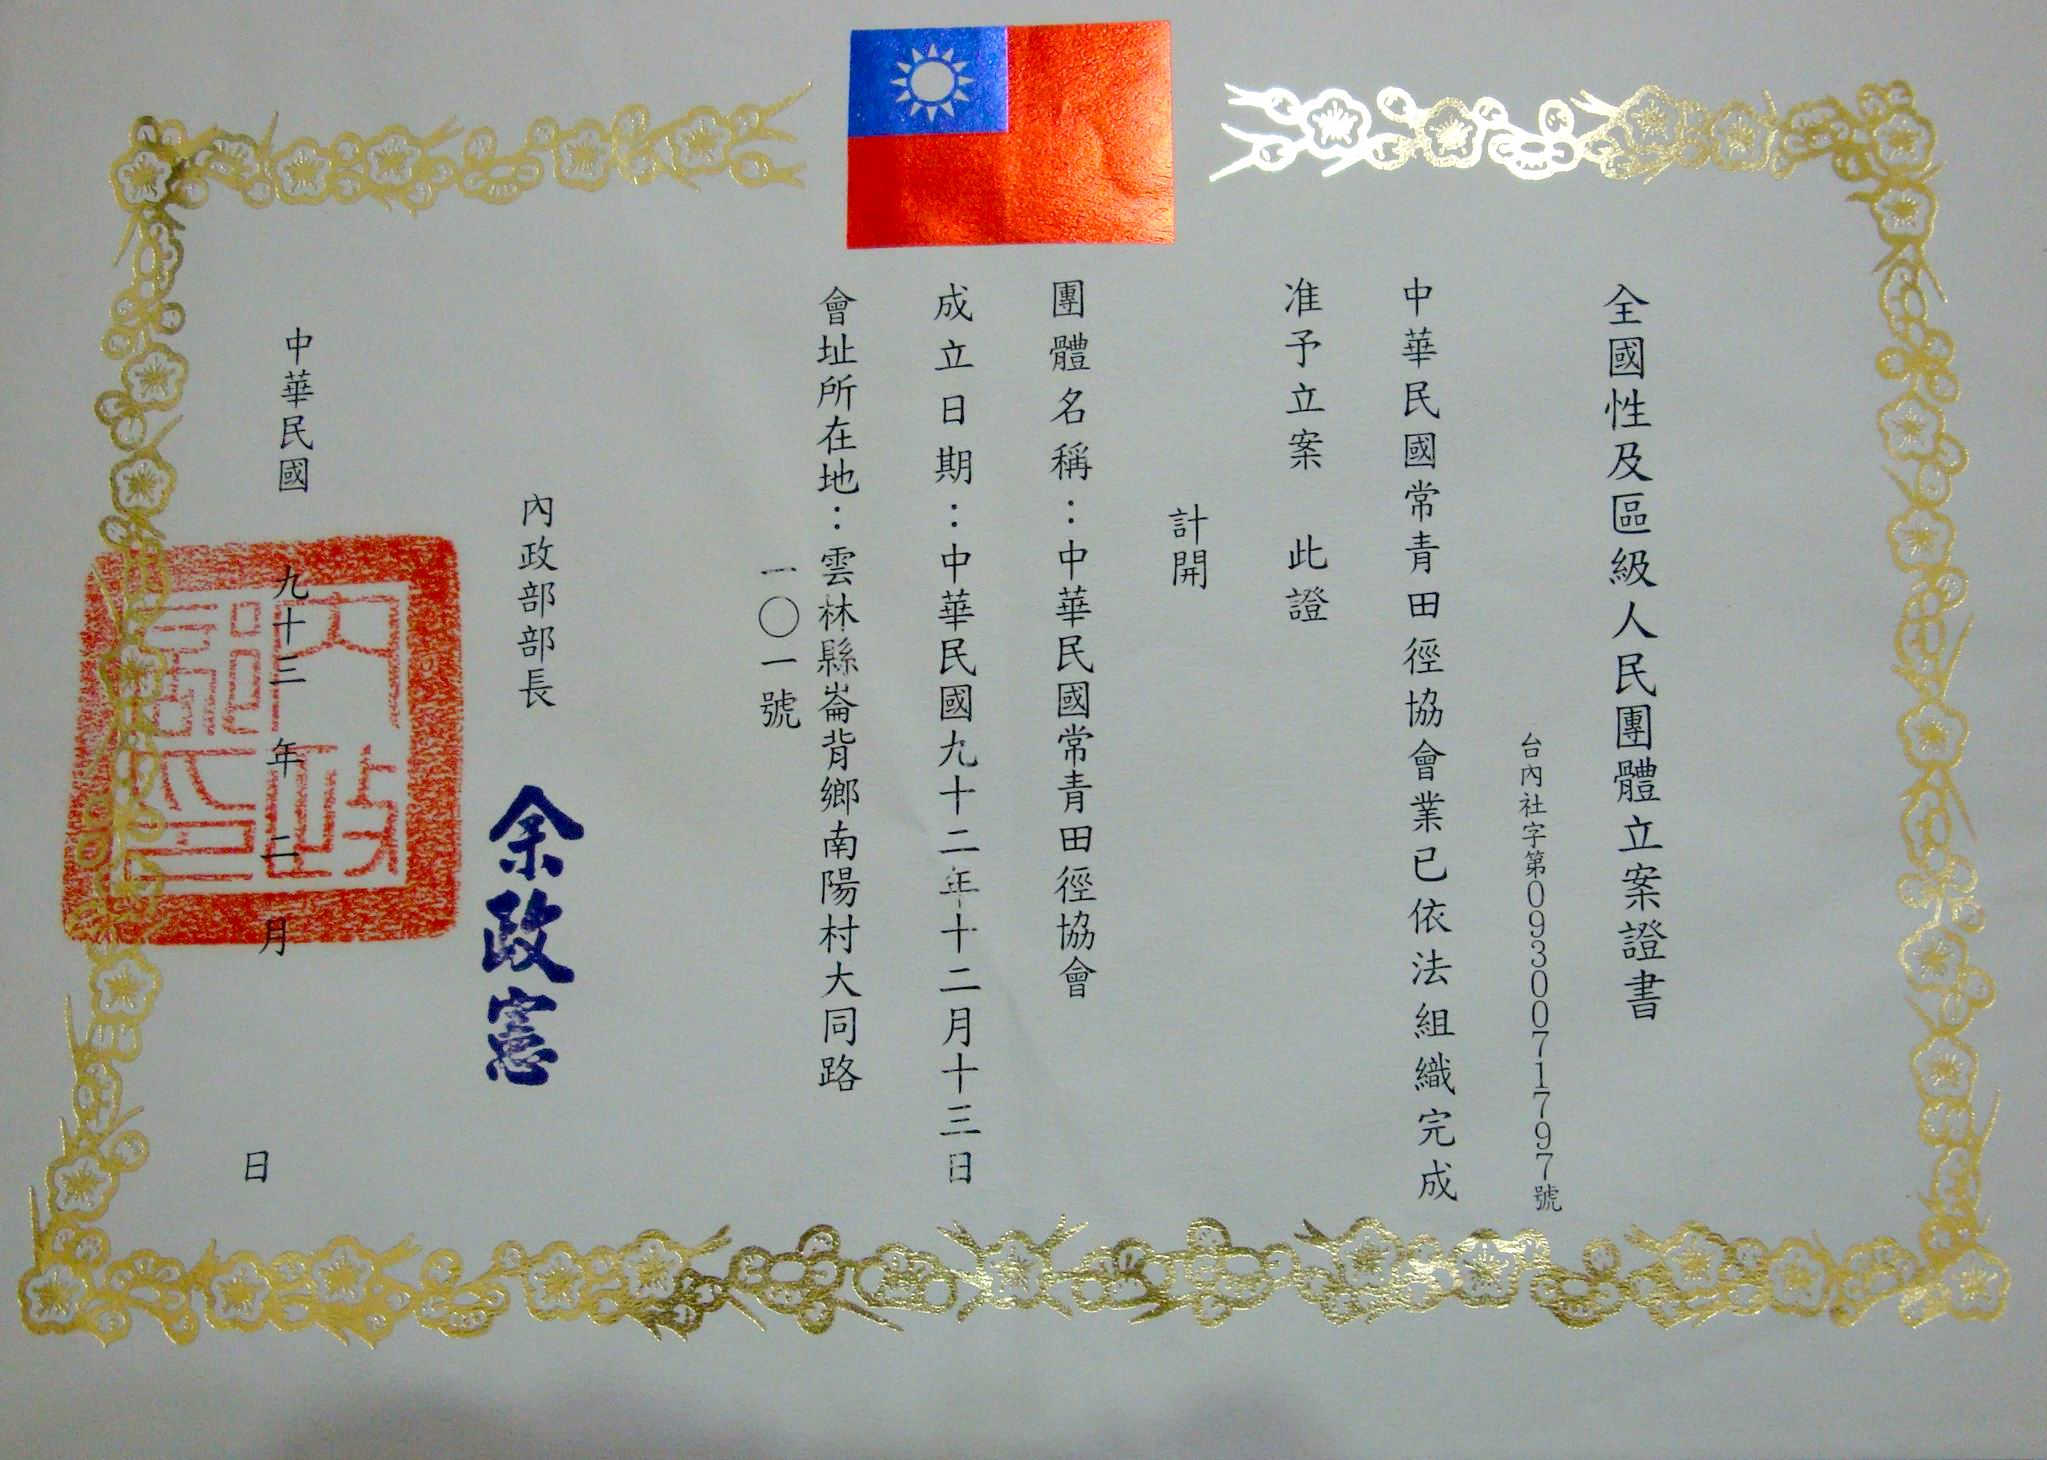 全國性及區級人民團體立案證書
台內社字第0930071797號
中華民國常青田徑協會業已依法組織完成
准予立案　此證
計開
團體名稱：中華民國常青田徑協會
成立日期：中華民國九十二年十二月十三日
會址所在地：雲林縣崙背鄉南陽村大同路
一〇一號
內政部部長　余政憲
中華民國　九十三　年　二　月　日
內政
部印